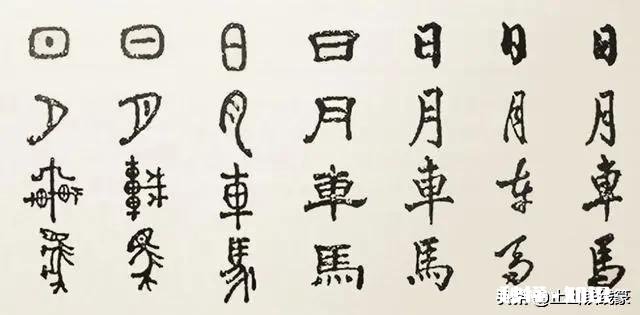 日 日 日 日 日 日 日
月 月 月 月 月 月 月
車 車 車 車 車 車 車
馬 馬 馬 馬 馬 馬 馬